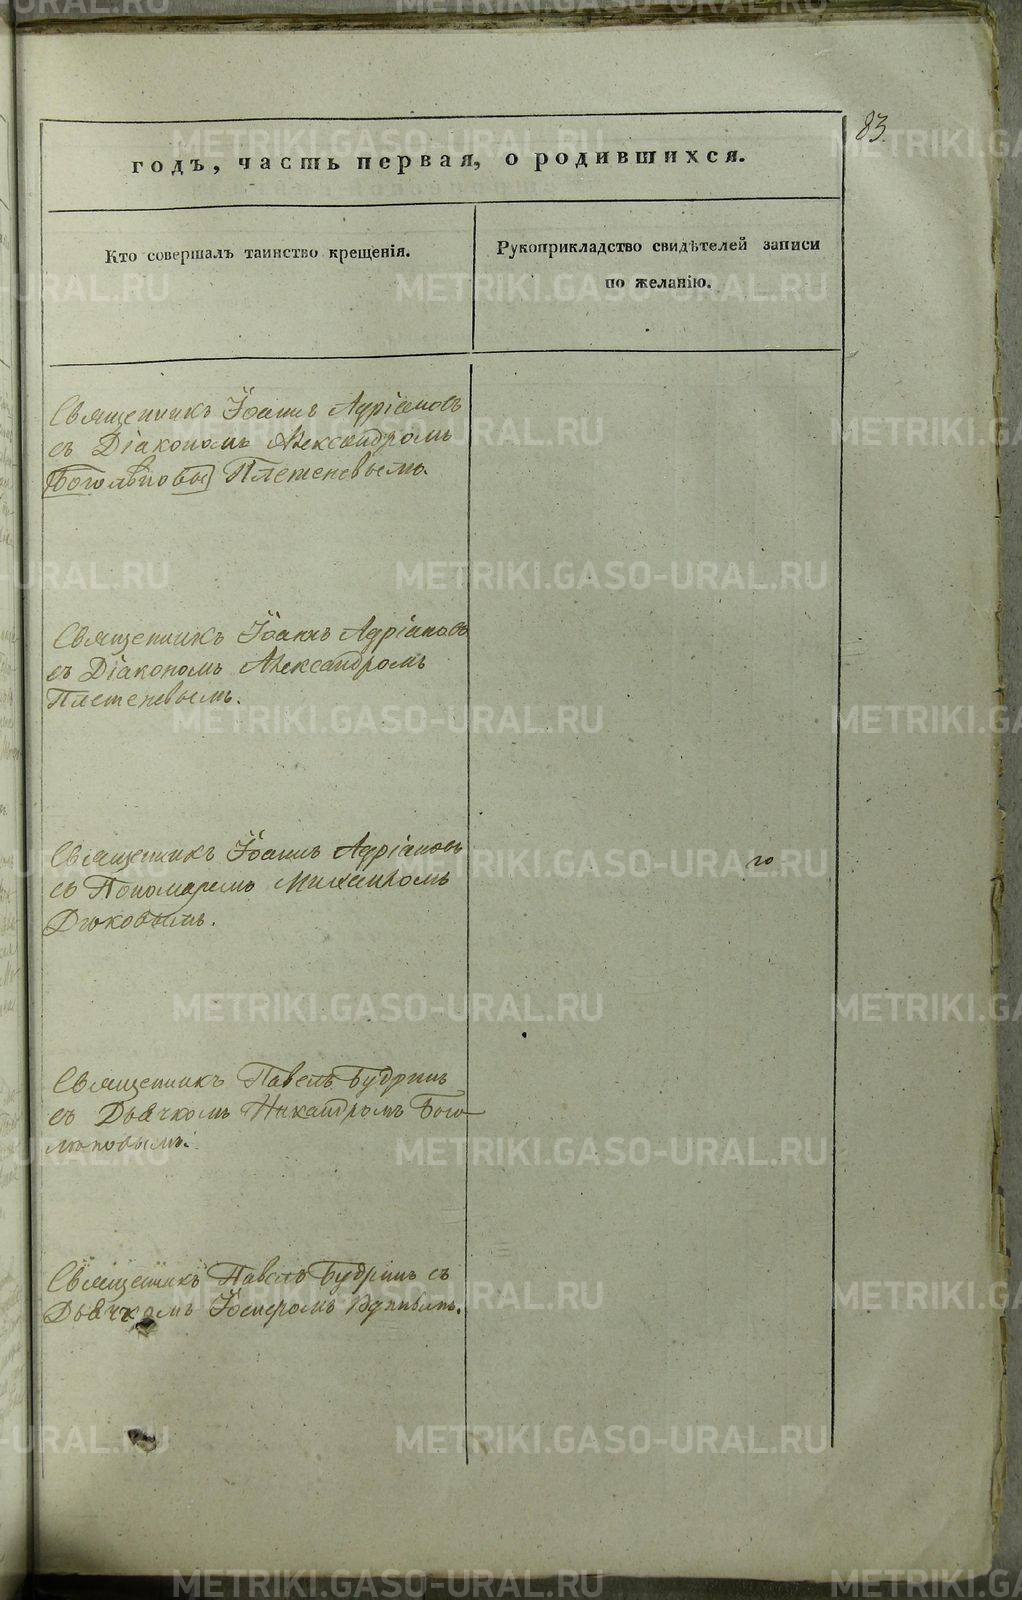 83
годъ, часть первая, о родившихся.
Кто совершалъ таинство крещенія.
Рукоприкладство свидѣтелей записи
по желанію.
Священникъ Іоаннъ Адріановъ
съ Діакономъ Александромъ
Боголюбовы Плетеневымъ.
Священникъ Іоаннъ Адріановъ
съ Діакономъ Александромъ
Плетеневымъ.
Священникъ Іоаннъ Адріановъ
съ Пономаремъ
Священникъ Павелъ Будринъ
съ Дьячкомъ Никандромъ Бого
любовымъ.
Священникъ Павелъ Будринъ съ
Дьячкомъ
METRIKI.GASO-URAL.RU